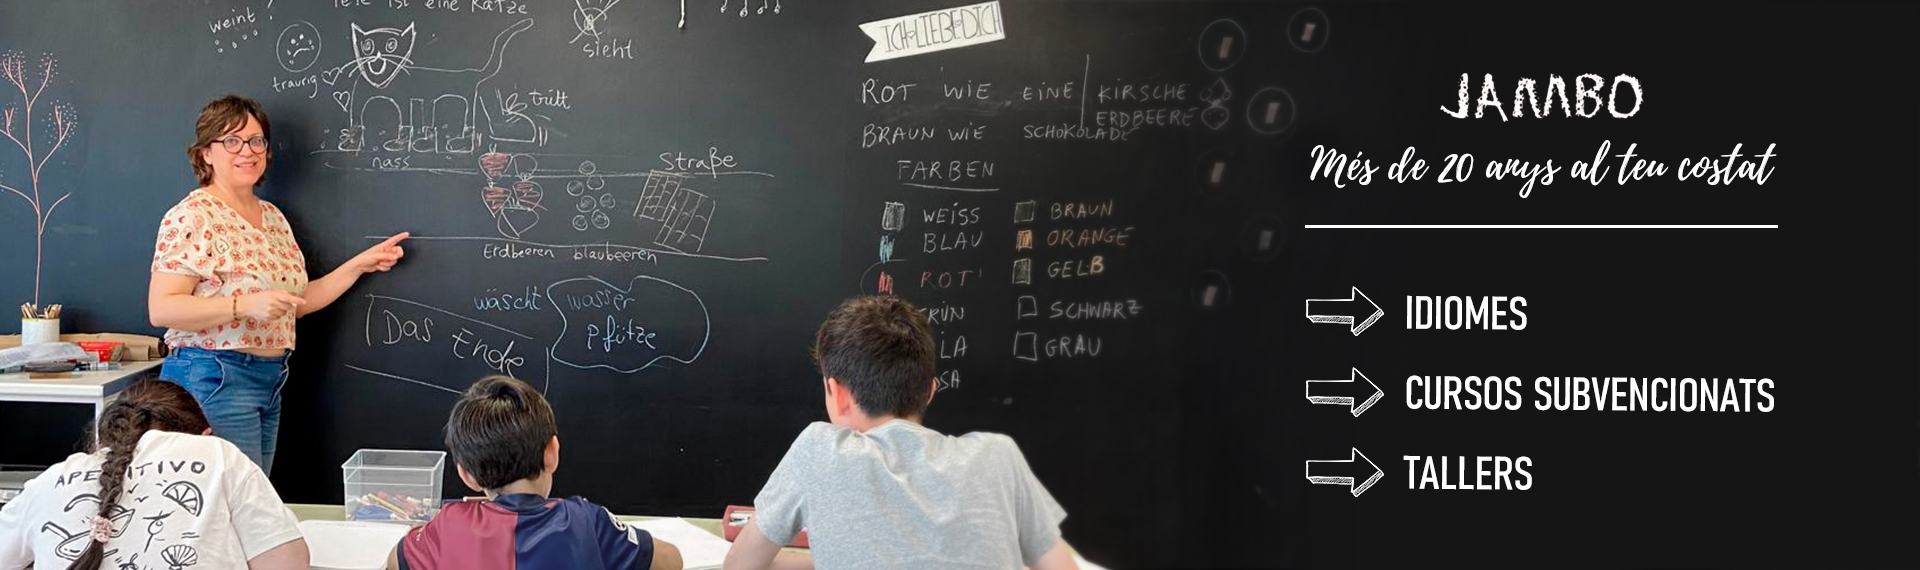 weint
Tete ist eine Katze
sieht
traurig
tritt
nass
Straße
Erdbeeren blaubeeren
wäscht
wasser
Pfütze
Das Ende
ICH LIEBE DICH
ROT WIE EINE KIRSCHE
ERDBEERE
BRAUN WIE SCHOKOLADE
FARBEN
WEISS
BLAU
ROT
RÜN
LA
OSA
BRAUN
ORANGE
GELB
SCHWARZ
GRAU
JAMBO
Més de 20 anys al teu costat
IDIOMES
CURSOS SUBVENCIONATS
TALLERS